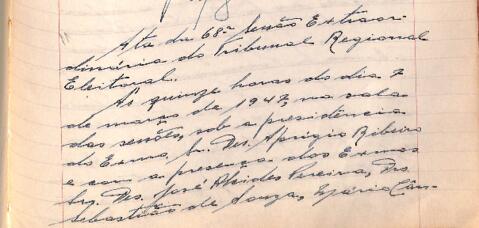 Ata da 68ª Sessão Extraor-
dinária do Tribunal Regional
Eleitoral.
Às quinze horas do dia 7
de março de 1947, na sala
das sessões, sob a presidência
do Exmo. Sr. Des. Aprigio Ribeiro
e com a presença dos Exmos
Srs. Des. José Alcides Pereira, Drs.
Sebastião de Souza, Mário